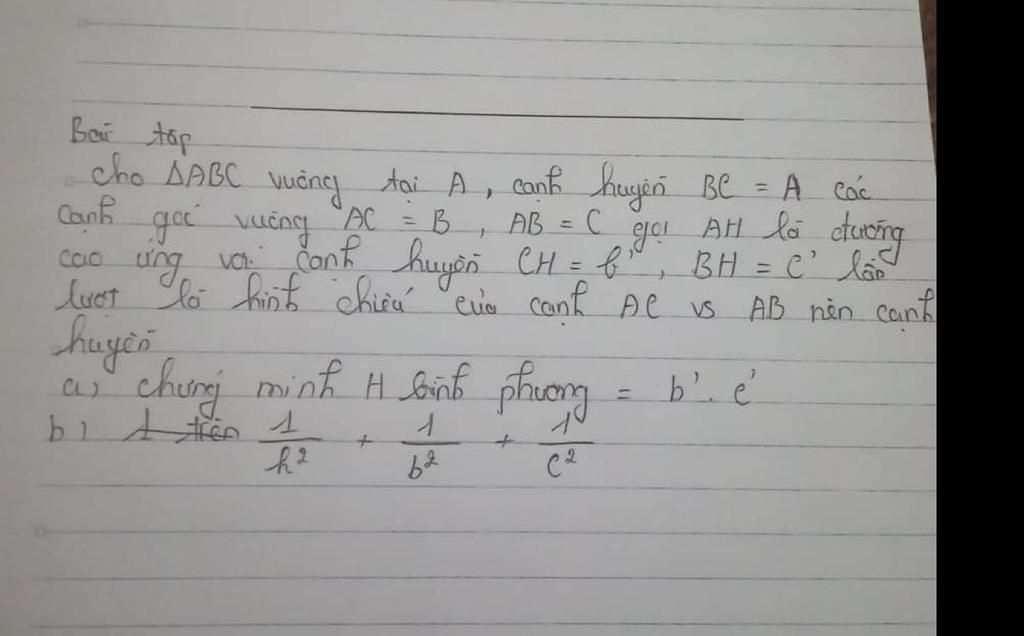 Bài tập
cho ΔABC vuông tại A, cạnh huyền BC = A các
cạnh góc vuông AC = B, AB = C gọi AH là đường
cao ứng với cạnh huyền CH = b', BH = C' lần
lượt là hình chiếu của cạnh AC vs AB nên cạnh
huyền
a, chứng minh H bình phương = b'. c'
b, 1/h² + 1/b² + 1/c²